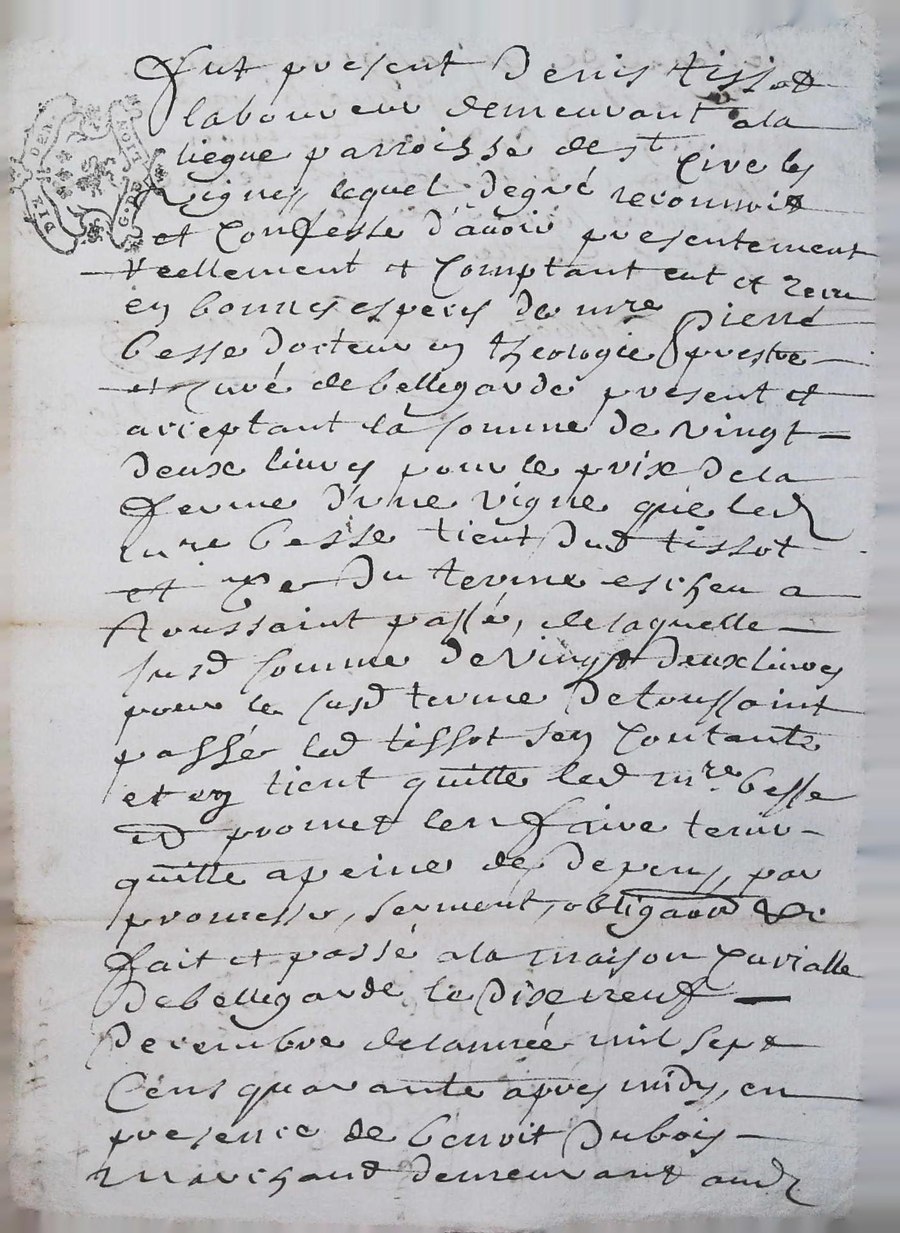 Fut present Denis tissot
laboureur demeurant a la
liegue parroisse de st Cire les
vignes lequel degré reconnoit
et Confesse d'avoir presentement
reellement et Comptant eut et receu
en bonnes especes de mre Pierre
besse docteur en theologie prestre
et Curé de bellegarde present et
acceptant la somme de vingt
deux livres pour le prix de la
ferme d'une vigne que led
mre besse tient dud tissot
et Ce du terme escheu a
toussaint passé, de laquelle
susd somme de vingt deux livres
pour le susd terme de toussaint
passé led tissot s'en Contante
et en tient quitte led mre besse
et promet l'en faire tenir
quitte a peine de depens, par
promesse, serment, obligaon &c
fait et passé a la maison Curialle
de bellegarde le dix neuf
decembre de l'année mil sept
Cens quarante apres midy, en
presence de benoit Dubois
marchand demeurant aud
GEN
DIE